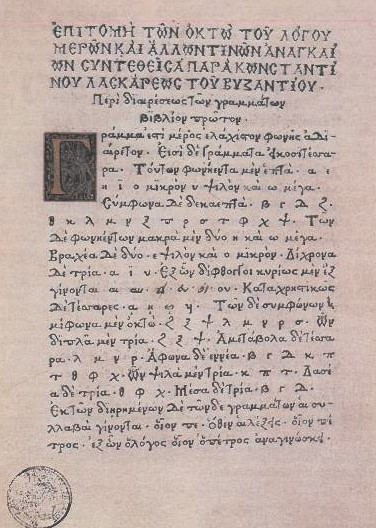 ἘΠΙΤΟΜῊ ΤῶΝ ὈΚΤῺ ΤΟΥ͂ ΛΌΓΟΥ
ΜΕΡῶΝ ΚΑῚ ἌΛΛΩΝ ΤΙΝῶΝ ἈΝΑΓΚΑΊ
ΩΝ ΣΥΝΤΕΘΕῖΣΑ ΠΑΡᾺ ΚΩΝΣΤΑΝΤΊ
ΝΟΥ ΛΑΣΚΆΡΕΩΣ ΤΟΥ͂ ΒΥΖΑΝΤΊΟΥ ·
Περὶ διαιρέσεως τῶν γραμμάτων
Βιβλίον πρῶτον ·
Γράμμα ἐστὶ μέρος ἐλάχιστον φωνῆς ἀδι
αίρετον · Εἰσὶ δὲ γράμματα ἐικοσιτέσσα
ρα · Τούτων φωνήεντα μὲν ἑπτὰ · α ε
η ι ο μικρὸν υ ψιλὸν καὶ ω μέγα ·
Σύμφωνα δὲ δεκαεπτὰ · β γ δ ζ
θ κ λ μ ν ξ π ρ σ τ φ χ ψ · Τῶν
δὲ φωνηέντων μακρὰ μὲν δύο η καὶ ω μέγα ·
Βραχέα δὲ δύο · ε ψιλὸν καὶ ο μικρὸν · Δίχρονα
δὲ τρία · α ι υ · Ἐξ ὧν δίφθογγοι κυρίως μὲν ἓξ
γίνονται αι αυ · ει ευ · οι ου · Καταχρηστικῶς
δὲ τέσσαρες · ᾳ ῃ ῳ · Τῶν δὲ συμφώνων ἡ
μίφωνα μὲν ὀκτὼ · ζ ξ ψ λ μ ν ρ σ · Ὧν
διπλᾶ μὲν τρία · ζ ξ ψ · Ἀμετάβολα δὲ τέσσα
ρα · λ μ ν ρ · Ἄφωνα δὲ ἐννέα · β γ δ κ π
τ θ φ χ · Ὧν ψιλὰ μὲν τρία · κ π τ · Δασέ
α δὲ τρία · θ φ χ · Μέσα δὲ τρία · β γ δ ·
Ἐκ τῶν διῃρημένων δὲ τῶνδε γραμμάτων αἱ συ
λλαβαὶ γίνονται · οἷον πε · ὅθεν αἱ λέξεις · οἷον πέ
τρος · ἐξ ὧν ὁ λόγος οἷον ὁ πέτρος ἀναγινώσκει ·